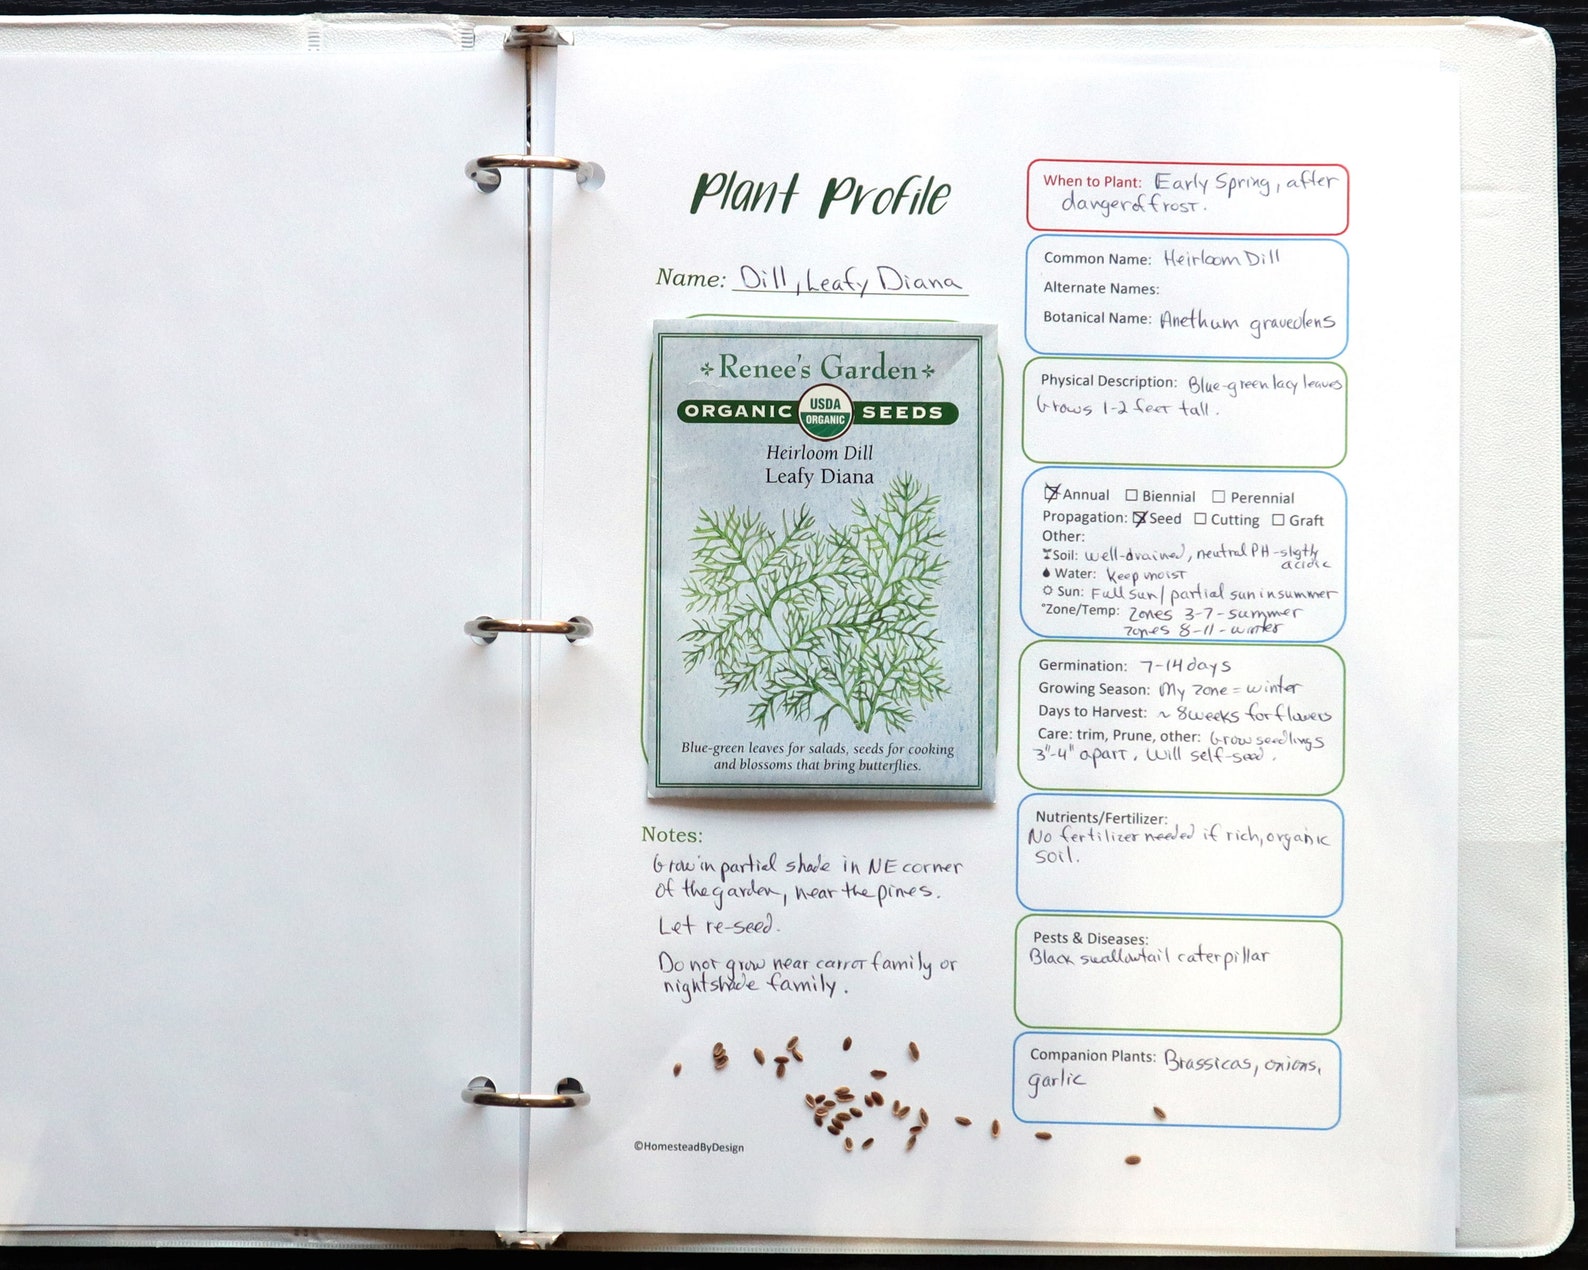 Plant Profile
Name: Dill, Leafy Diana
Renee's Garden
ORGANIC USDA ORGANIC SEEDS
Heirloom Dill
Leafy Diana
Blue-green leaves for salads, seeds for cooking
and blossoms that bring butterflies.
Notes:
Grow in partial shade in NE corner
of the garden, near the pines.
Let re-seed.
Do not grow near carrot family or
nightshade family.
©HomesteadByDesign
When to Plant: Early Spring, after
danger of frost.
Common Name: Heirloom Dill
Alternate Names:
Botanical Name: Anethum graveolens
Physical Description: Blue-green lacy leaves
Grows 1-2 feet tall.
Annual Biennial Perennial
Propagation: Seed Cutting Graft
Other:
Soil: well-drained, neutral PH-slgtly
acidic
Water: Keep moist
Sun: Full sun/partial sun in summer
°Zone/Temp: Zones 3-7-summer
zones 8-11-winter
Germination: 7-14 days
Growing Season: My zone = winter
Days to Harvest: ~ 8 weeks for flowers
Care: trim, Prune, other: Grow seedlings
3"-4" apart. Will self-seed.
Nutrients/Fertilizer:
No fertilizer needed if rich, organic
soil.
Pests & Diseases:
Black swallowtail caterpillar
Companion Plants: Brassicas, onions,
garlic